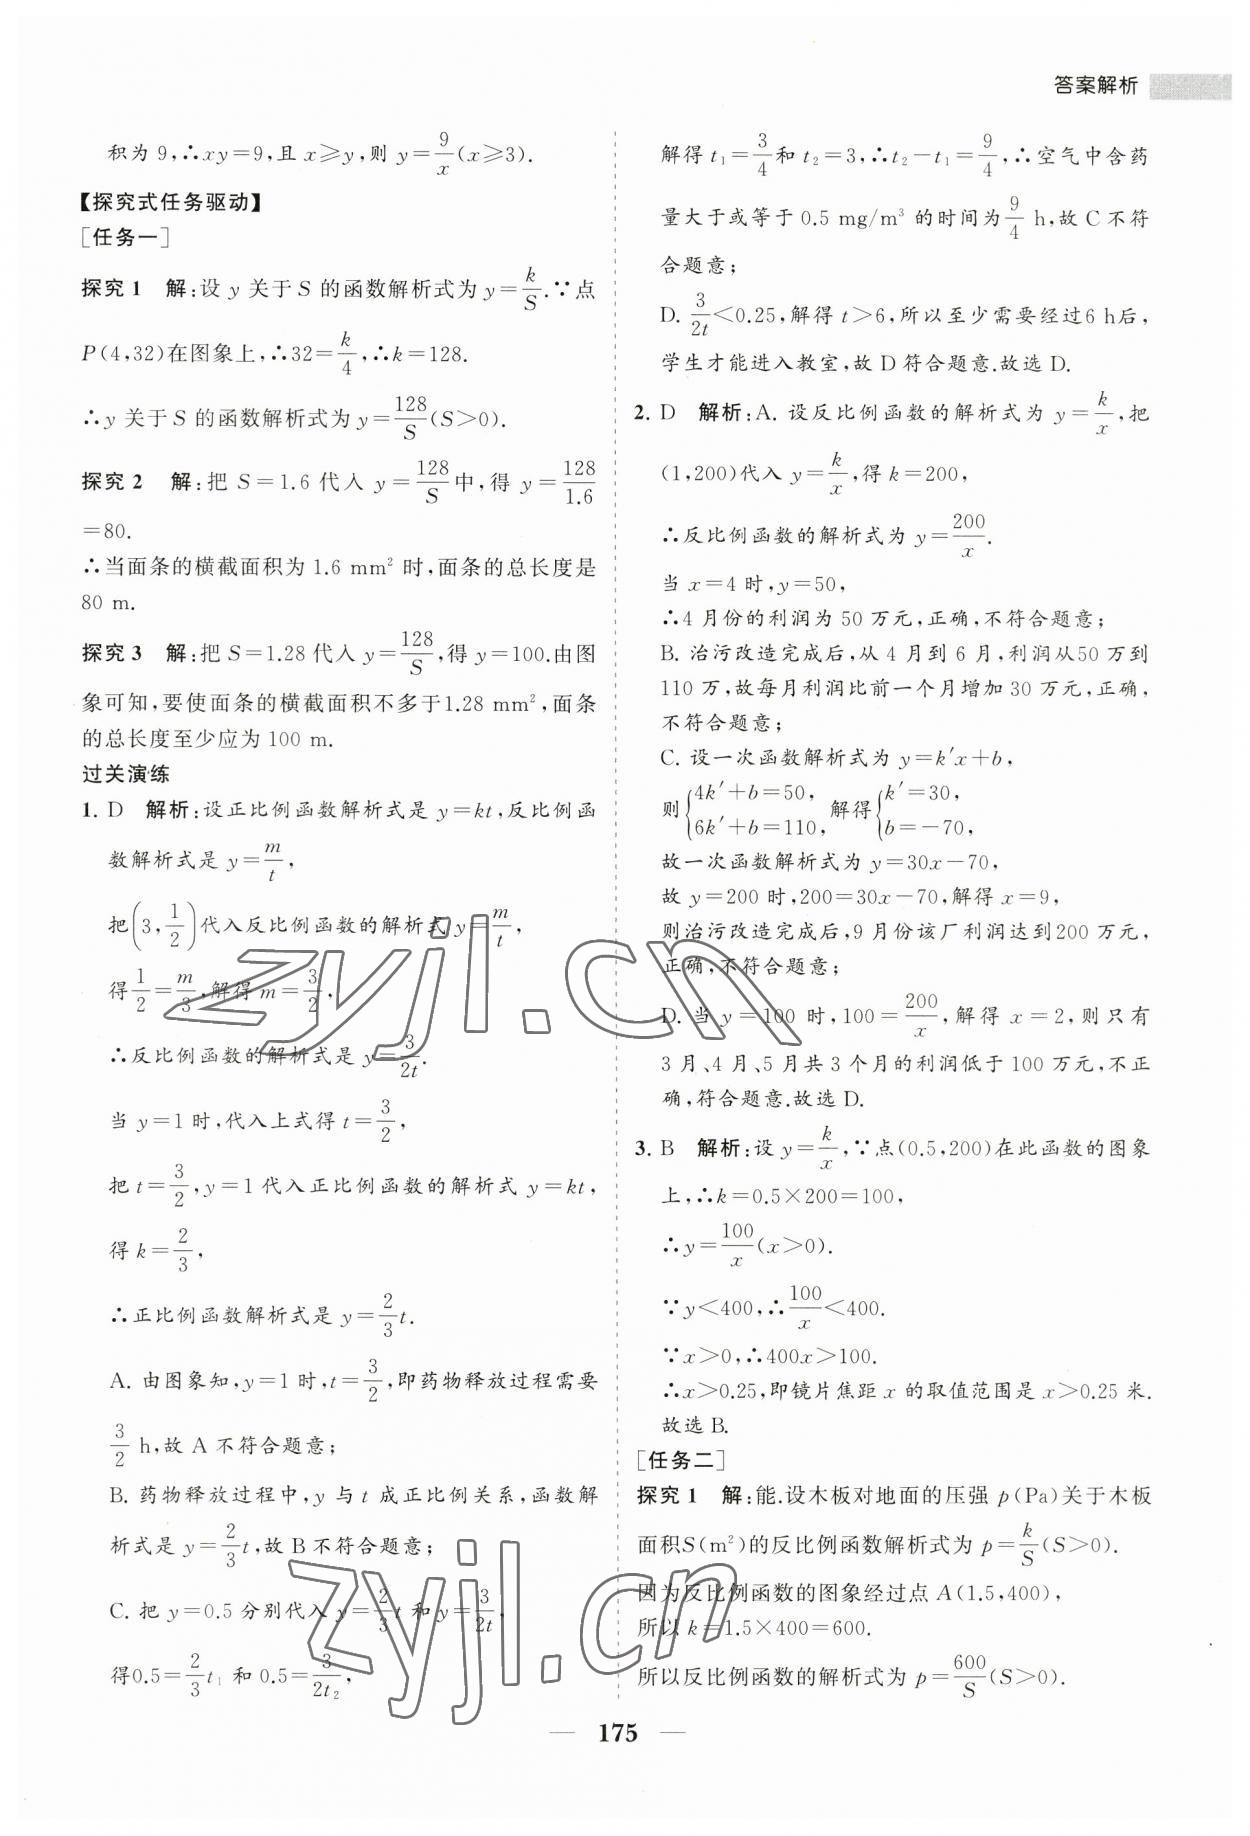 答案解析
积为 9,∴xy=9,且 x≥y,则 y=9/x(x≥3).
【探究式任务驱动】
[任务一]
探究 1 解:设 y 关于 S 的函数解析式为 y=k/S.∵点
P(4,32)在图象上,∴32=k/4,∴k=128.
∴y 关于 S 的函数解析式为 y=128/S(S>0).
探究 2 解:把 S=1.6 代入 y=128/S中,得 y=128/1.6
=80.
∴当面条的横截面积为 1.6 mm² 时,面条的总长度是
80 m.
探究 3 解:把 S=1.28 代入 y=128/S,得 y=100.由图
象可知,要使面条的横截面积不多于1.28 mm²,面条
的总长度至少应为 100 m.
过关演练
1. D 解析:设正比例函数解析式是 y=kt,反比例函
数解析式是 y=m/t,
把(3,1/2)代入反比例函数的解析式 y=m/t,
得1/2=m/3,解得 m=3/2,
∴反比例函数的解析式是 y=3/2t.
当 y=1 时,代入上式得 t=3/2,
把 t=3/2,y=1 代入正比例函数的解析式 y=kt,
得 k=2/3,
∴正比例函数解析式是 y=2/3t.
A. 由图象知,y=1 时,t=3/2,即药物释放过程需要
3/2 h,故 A 不符合题意;
B. 药物释放过程中,y 与 t 成正比例关系,函数解
析式是 y=2/3t,故 B 不符合题意;
C. 把 y=0.5 分别代入 y=2/3t 和 y=3/2t,
得0.5=2/3t₁ 和 0.5=3/2t₂,
解得 t₁=3/4和 t₂=3,∴t₂-t₁=9/4,∴空气中含药
量大于或等于 0.5 mg/m³ 的时间为9/4 h,故 C 不符
合题意;
D. 3/2t<0.25,解得 t>6,所以至少需要经过6 h后,
学生才能进入教室,故 D 符合题意.故选 D.
2. D 解析:A. 设反比例函数的解析式为 y=k/x,把
(1,200)代入 y=k/x,得 k=200,
∴反比例函数的解析式为 y=200/x.
当 x=4 时,y=50,
∴4 月份的利润为 50 万元,正确,不符合题意;
B. 治污改造完成后,从 4 月到 6 月,利润从50 万到
110 万,故每月利润比前一个月增加 30 万元,正确,
不符合题意;
C. 设一次函数解析式为 y=k′x+b,
则{4k′+b=50, 6k′+b=110, 解得{k′=30, b=-70,
故一次函数解析式为 y=30x-70,
故 y=200 时,200=30x-70,解得 x=9,
则治污改造完成后,9 月份该厂利润达到200 万元,
正确,不符合题意;
D. 当 y=100 时,100=200/x,解得 x=2,则只有
3 月、4 月、5 月共 3 个月的利润低于 100 万元,不正
确,符合题意.故选 D.
3. B 解析:设 y=k/x,∵点(0.5,200)在此函数的图象
上,∴k=0.5×200=100,
∴y=100/x(x>0).
∵y<400,∴100/x<400.
∵x>0,∴400x>100.
∴x>0.25,即镜片焦距 x 的取值范围是 x>0.25 米.
故选 B.
[任务二]
探究 1 解:能.设木板对地面的压强 p(Pa)关于木板
面积S(m²)的反比例函数解析式为 p=k/S(S>0).
因为反比例函数的图象经过点 A(1.5,400),
所以 k=1.5×400=600.
所以反比例函数的解析式为 p=600/S(S>0).
— 175 —
zyjl.cn
zyjl.cn